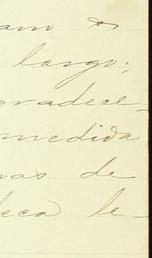 largo;
gradece-
medida
nas de
teca le-